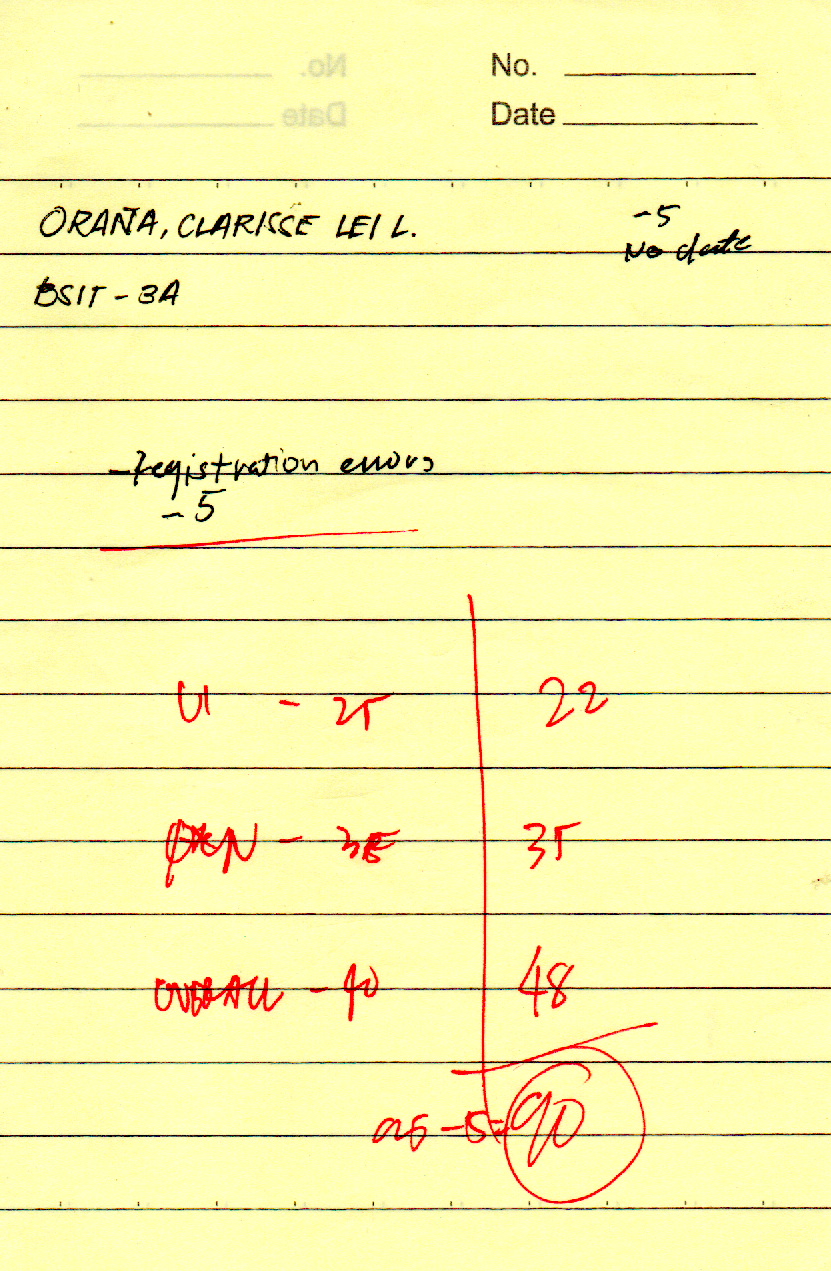 No.
Date
ORAÑA, CLARISSE LEI L.
-5
No date
BSIT - 3A
- registration errors
- 5
UI - 25 22
- 35 35
OVERALL - 40 48
95 - 5 = 90